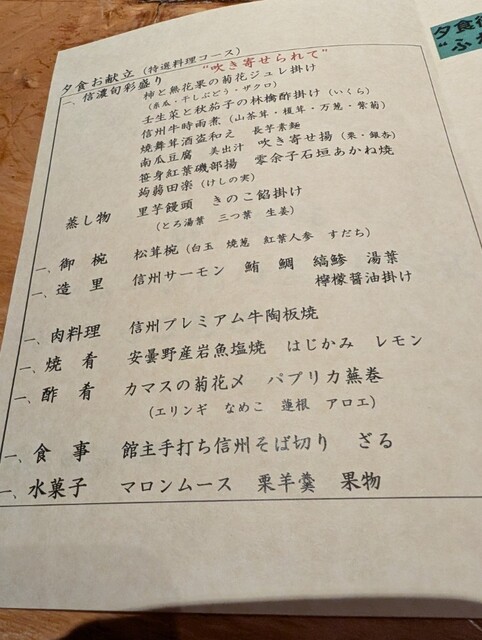 夕食お献立（特選料理コース）
"吹き寄せられて"
一、信濃旬彩盛り 柿と無花果の菊花ジュレ掛け
（糸瓜・干しぶどう・ザクロ）
壬生菜と秋茄子の林檎酢掛け（いくら）
信州牛時雨煮（山茶茸・榎茸・万葱・紫菊）
焼舞茸酒盗和え 長芋素麺
南瓜豆腐 美出汁 吹き寄せ揚（栗・銀杏）
笹身紅葉磯部揚 零余子石垣あかね焼
蒟蒻田楽（けしの実）
蒸し物 里芋饅頭 きのこ餡掛け
（とろ湯葉 三つ葉 生姜）
一、御椀 松茸椀（白玉 焼葱 紅葉人参 すだち）
一、造里 信州サーモン 鮪 鯛 縞鯵 湯葉
檸檬醤油掛け
一、肉料理 信州プレミアム牛陶板焼
一、焼肴 安曇野産岩魚塩焼 はじかみ レモン
一、酢肴 カマスの菊花〆 パプリカ蕪巻
（エリンギ なめこ 蓮根 アロエ）
一、食事 館主手打ち信州そば切り ざる
一、水菓子 マロンムース 栗羊羹 果物
夕食
"ふ